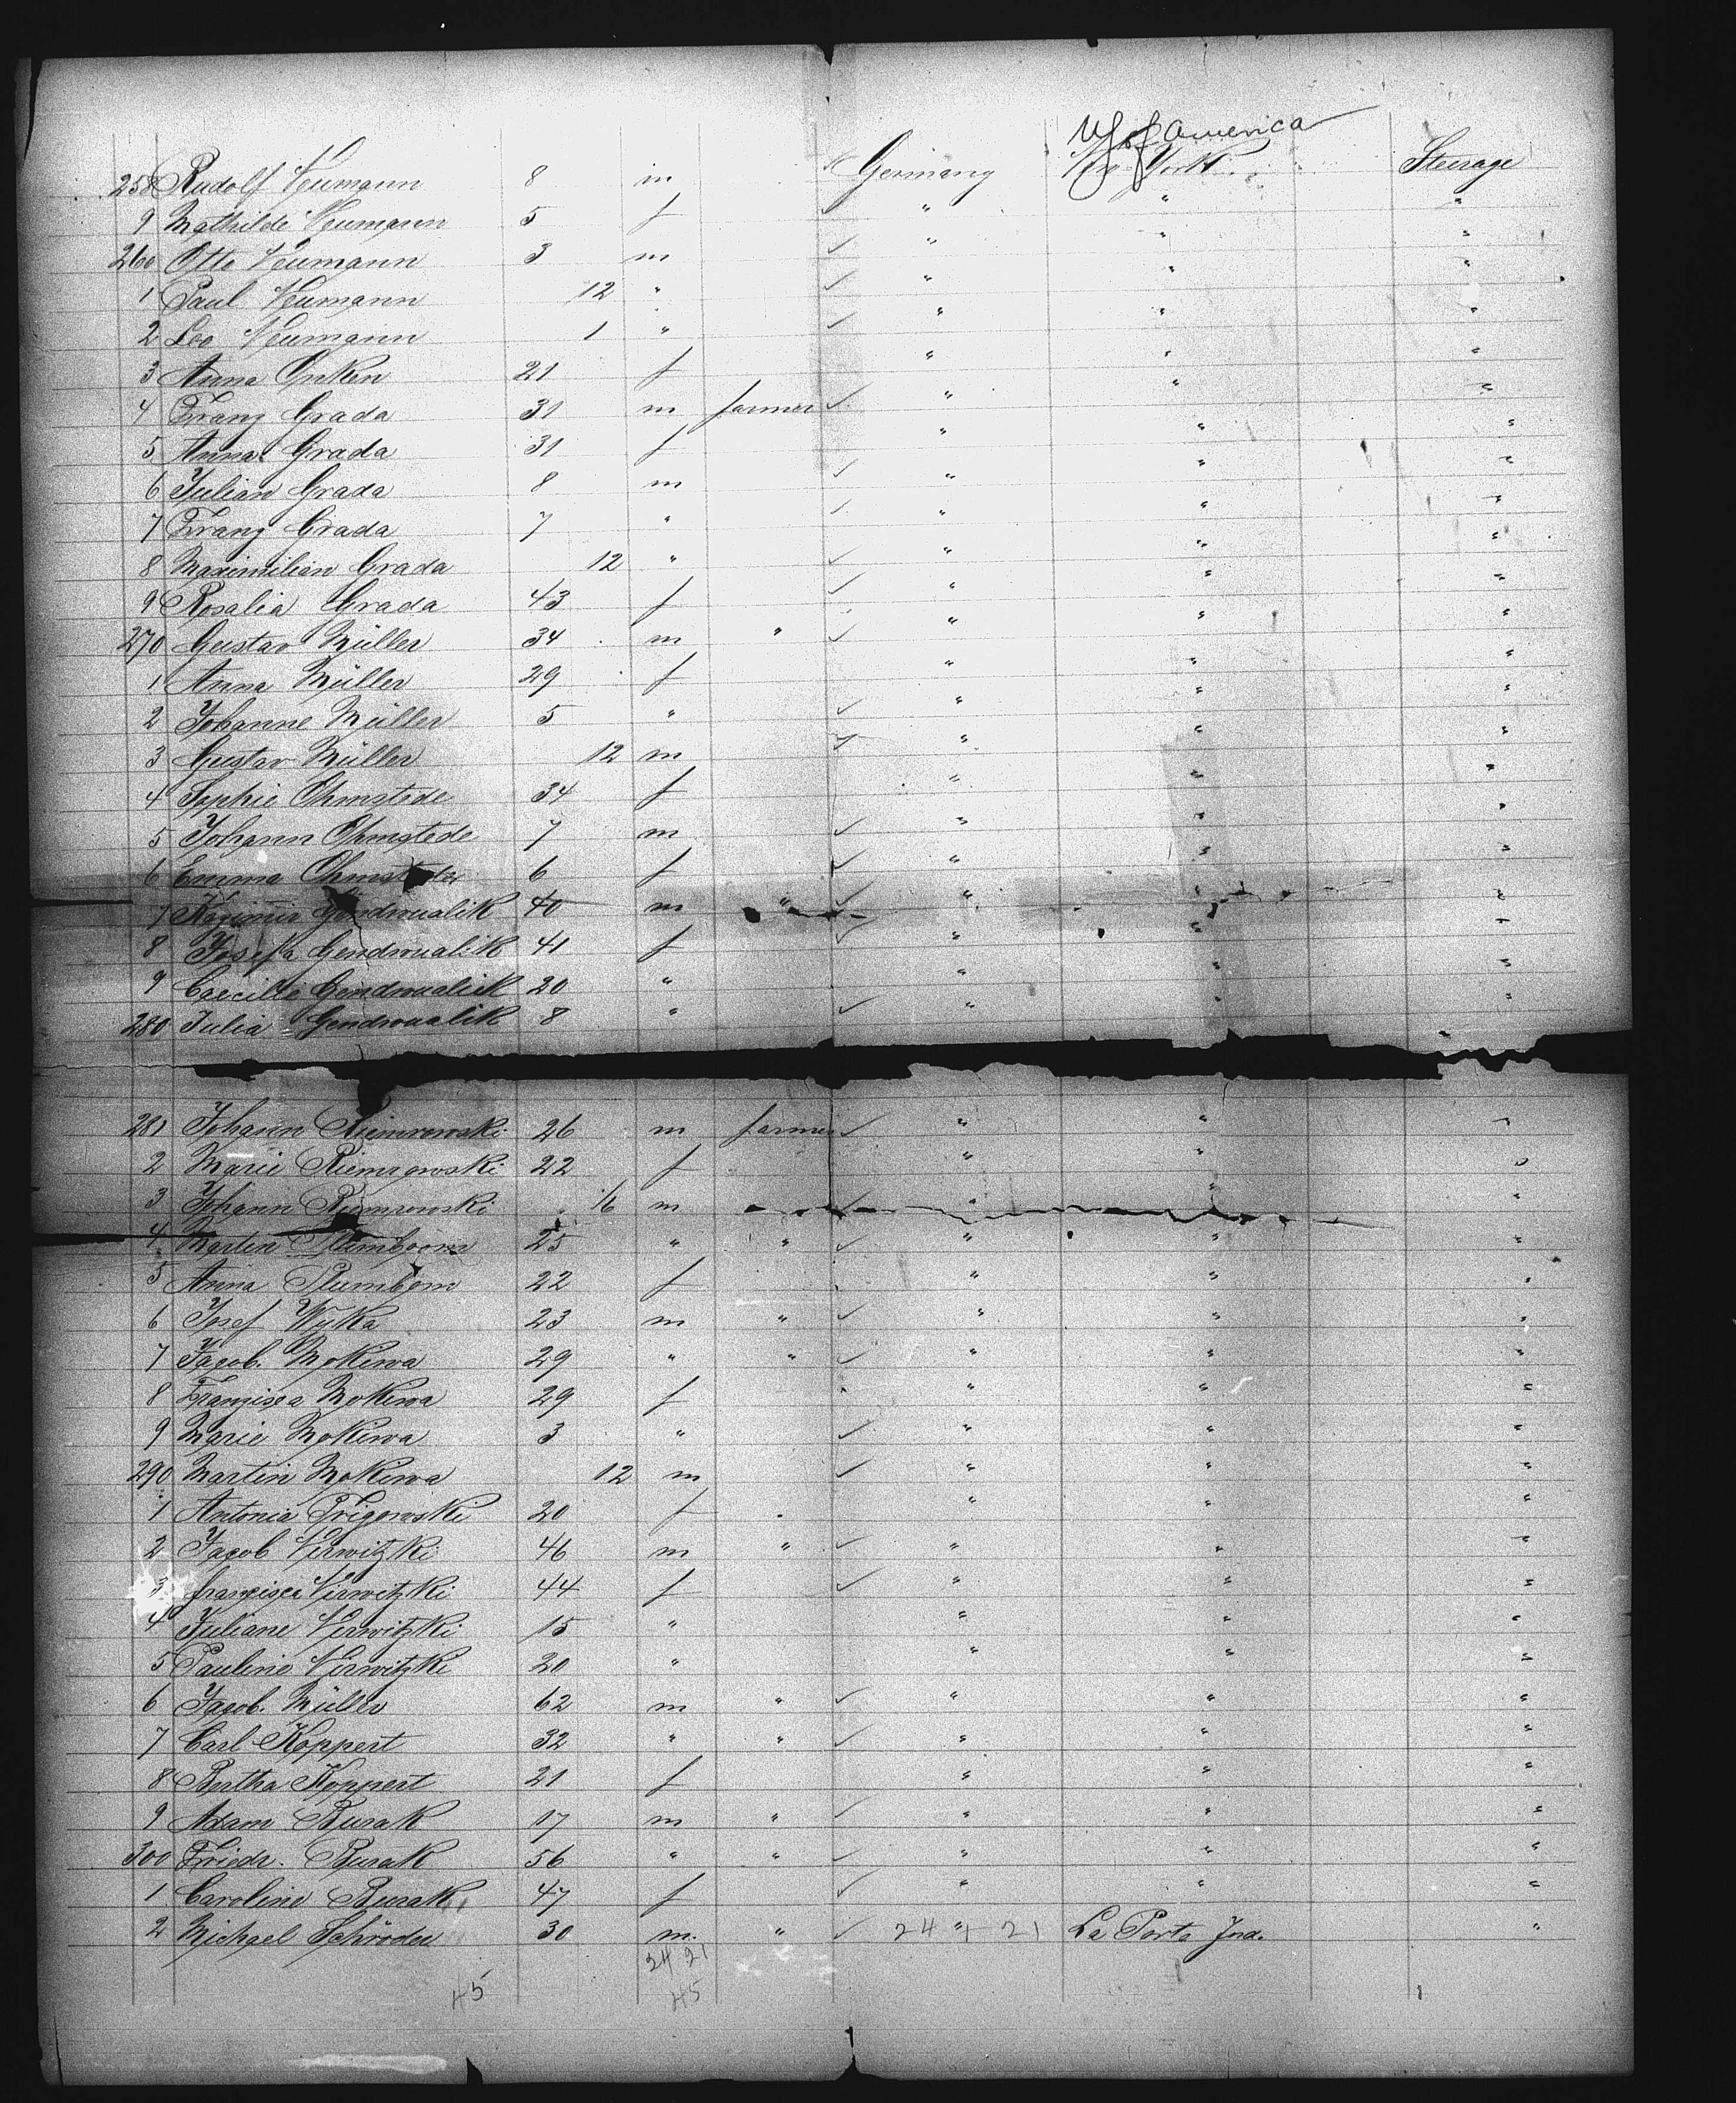 U S of America
258 Rudolf Neumann 8 m Germany New York Steerage
9 Mathilde Neumann 5 f " " "
260 Otto Neumann 3 m " " "
1 Paul Neumann 12 " " " "
2 Leo Neumann 1 " " " "
3 Anna Onken 21 f " " "
4 Franz Grada 31 m farmer " " "
5 Anna Grada 31 f " " "
6 Julian Grada 8 m " " "
7 Franz Grada 7 " " " "
8 Maximilian Grada 12 " " " "
9 Rosalia Grada 43 f " " "
270 Gustav Müller 34 m " " " "
1 Anna Müller 29 f " " "
2 Johanne Müller 5 " " " "
3 Gustav Müller 12 m " " "
4 Sophie Ohmstede 34 f " " "
5 Johann Ohmstede 7 m " " "
6 Emma Ohmstede 6 f " " "
7 Gendroualik 40 m " " " "
8 Josefa Gendroualik 41 f " " "
9 Caecilie Gendroualik 20 " " " "
280 Julia Gendroualik 8 " " " "
281 Johann Riemrowski 26 m farmer " " "
2 Marie Riemrowski 22 f " " "
3 Johann Riemrowski 16 m " " "
4 Martin Plumbom 25 " " " " "
5 Anna Plumbom 22 f " " "
6 Josef Wyka 23 m " " " "
7 Jacob. Mokiwa 29 " " " " "
8 Franzisca Mokiwa 29 f " " "
9 Marie Mokiwa 3 " " " "
290 Martin Mokiwa 12 m " " "
1 Antonia Trigowski 20 f " " "
2 Jacob Nirwitzki 46 m " " " "
3 franzisca Nirwitzki 44 f " " "
4 Juliane Nirwitzki 15 " " " "
5 Pauline Nirwitzki 20 " " " "
6 Jacob. Müller 62 m " " " "
7 Carl Koppert 32 " " " " "
8 Bertha Koppert 21 f " " "
9 Adam Burak 17 m " " " "
300 Friedr. Burak 56 " " " " "
1 Caroline Burak 47 f " " "
2 Michael Schröder 30 m. " 24 " 21 La Porte Ind. "
24 21
45 45